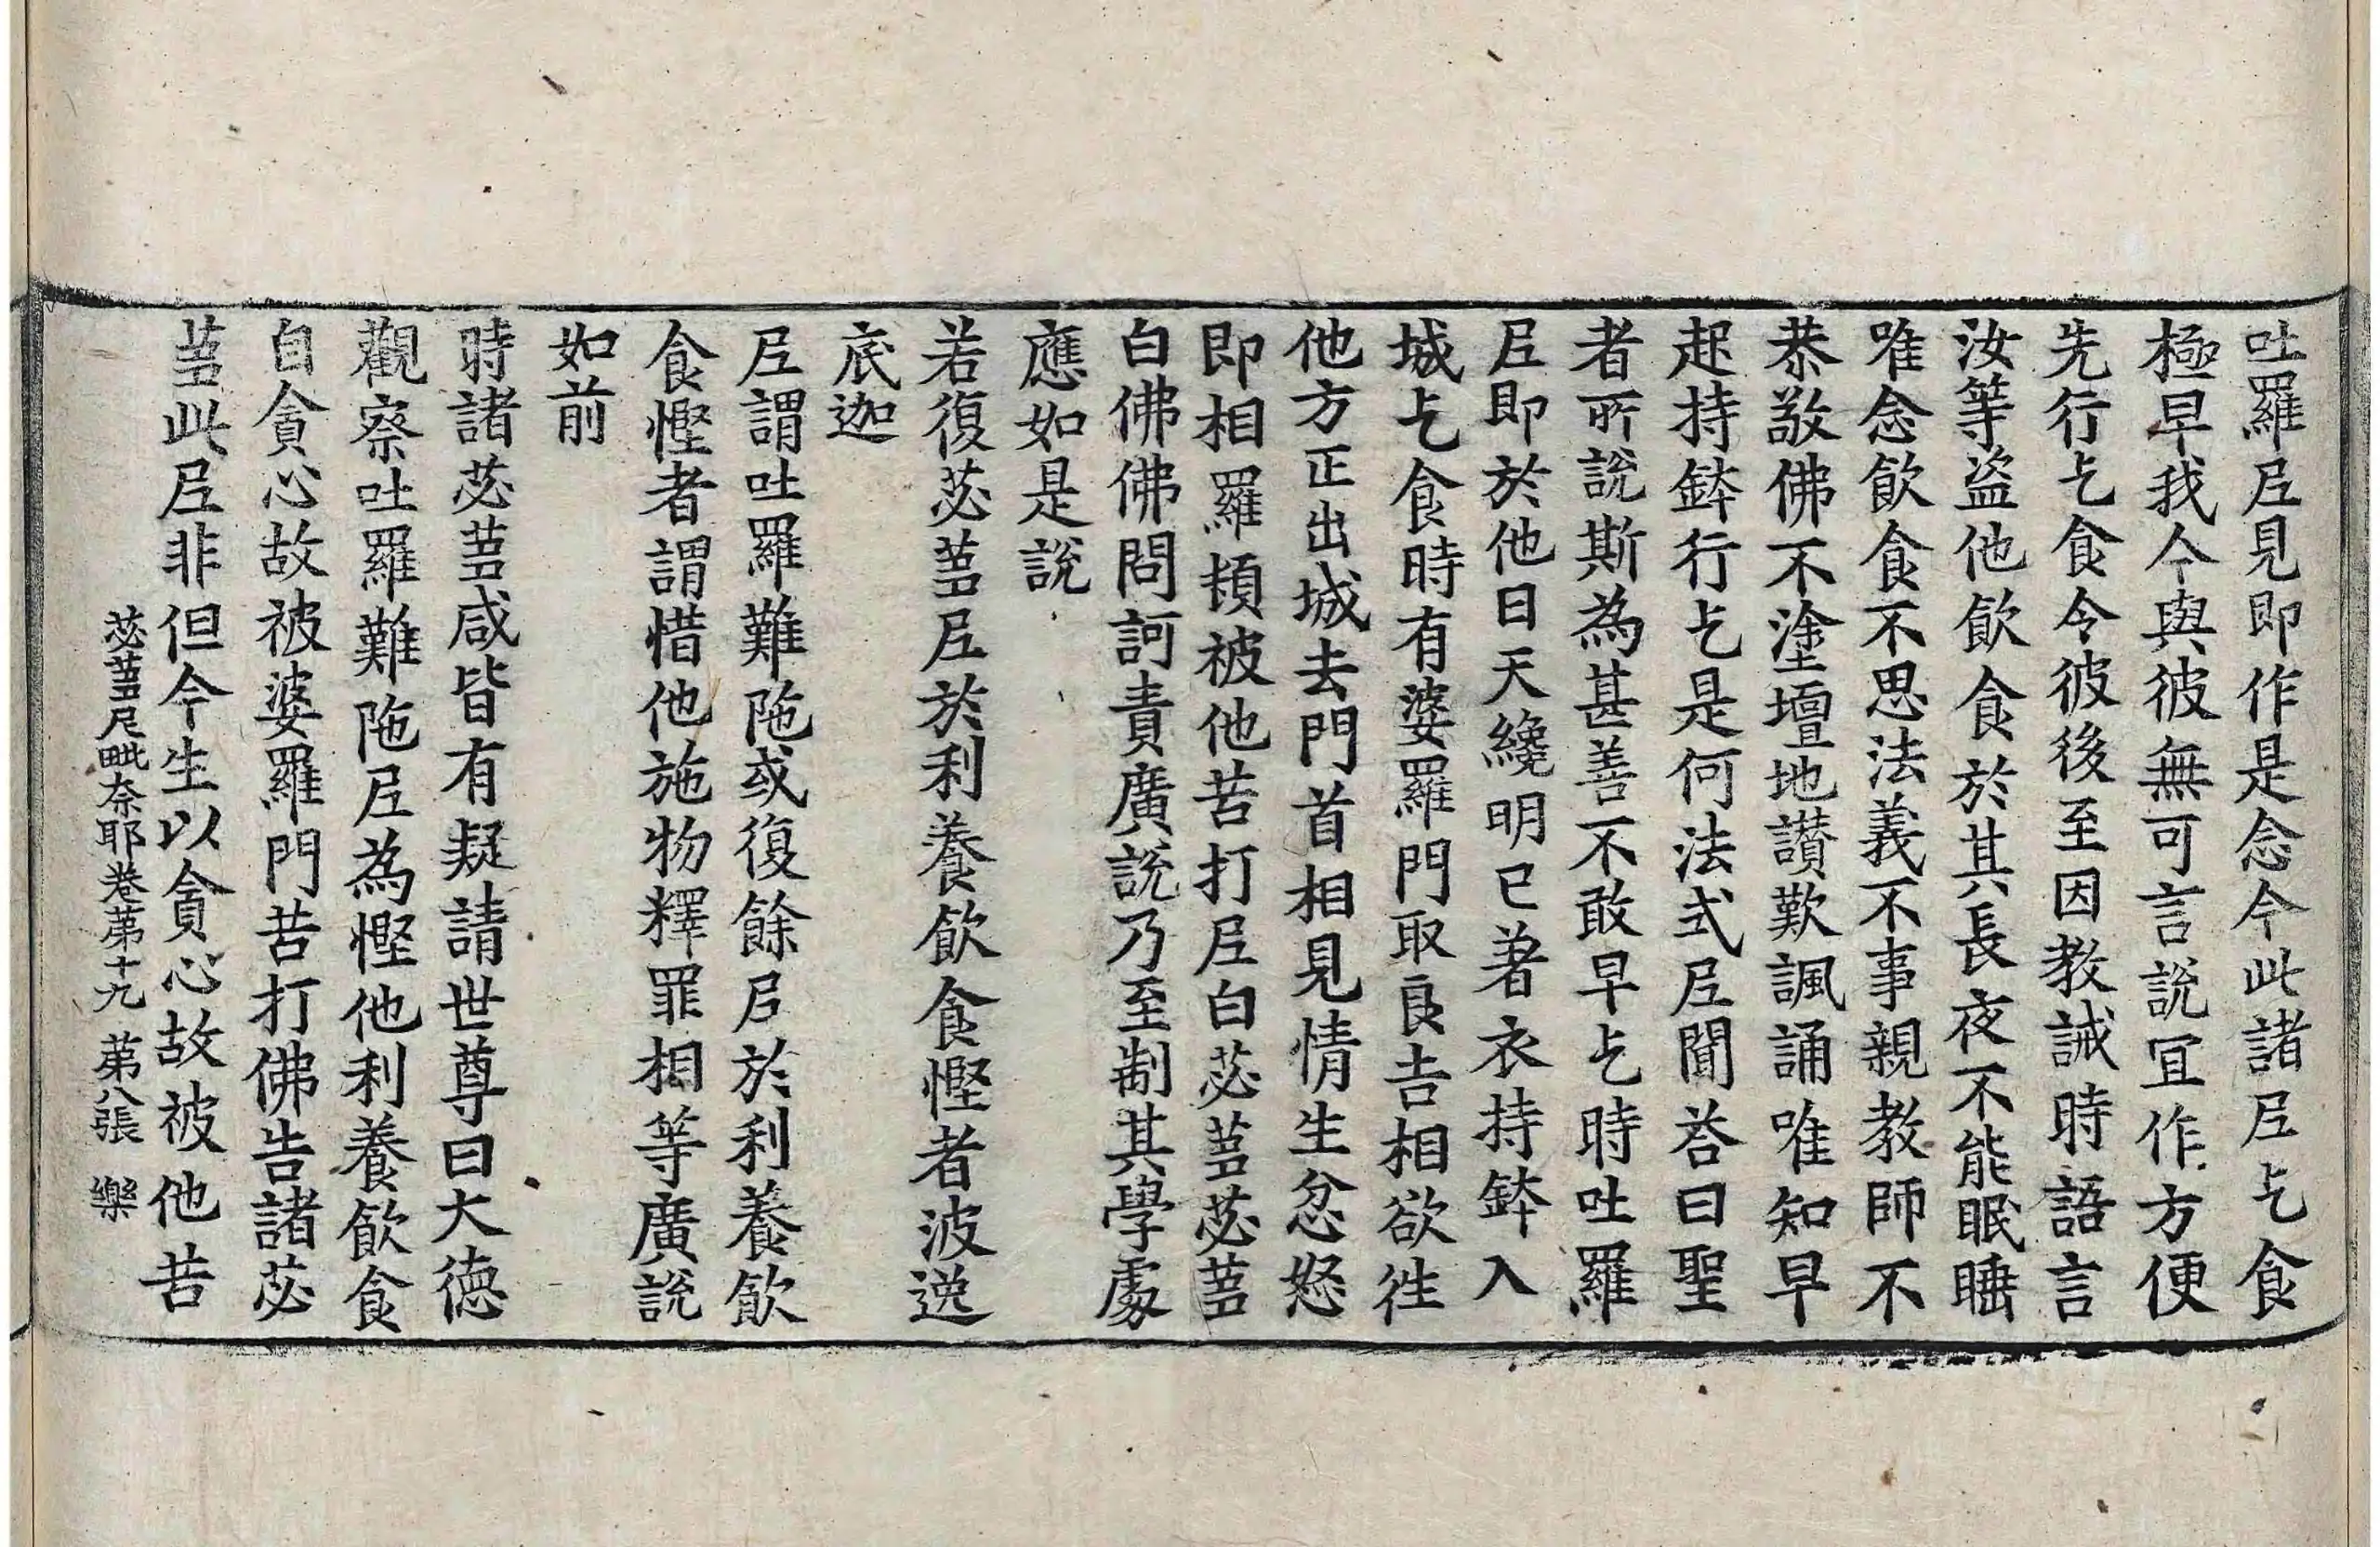 吐羅尼見即作是念今此諸尼乞食
極早我今與彼無可言說冝作方便
先行乞食令彼後至因教誡時語言
汝等盜他飲食於其長夜不能眠睡
唯念飲食不思法義不事親教師不
恭敬佛不塗壇地讃歎諷誦唯知早
起持鉢行乞是何法式尼聞荅曰聖
者所說斯為甚善不敢早乞時吐羅
尼即於他日天纔明已著衣持鉢入
城乞食時有婆羅門取良吉相欲徃
他方正出城去門首相見情生忿怒
即相羅頓被他苦打尼白苾芻苾芻
白佛佛問訶責廣說乃至制其學處
應如是說
若復苾芻尼於利養飲食慳者波逸
底迦
尼謂吐羅難陁或復餘尼於利養飲
食慳者謂惜他施物釋罪相等廣說
如前
時諸苾芻咸皆有疑請世尊曰大德
觀察吐羅難陁尼為慳他利養飲食
自貪心故被婆羅門苦打佛告諸苾
芻此尼非但今生以貪心故被他苦
苾芻尼毗奈耶卷第十九 第八張 樂